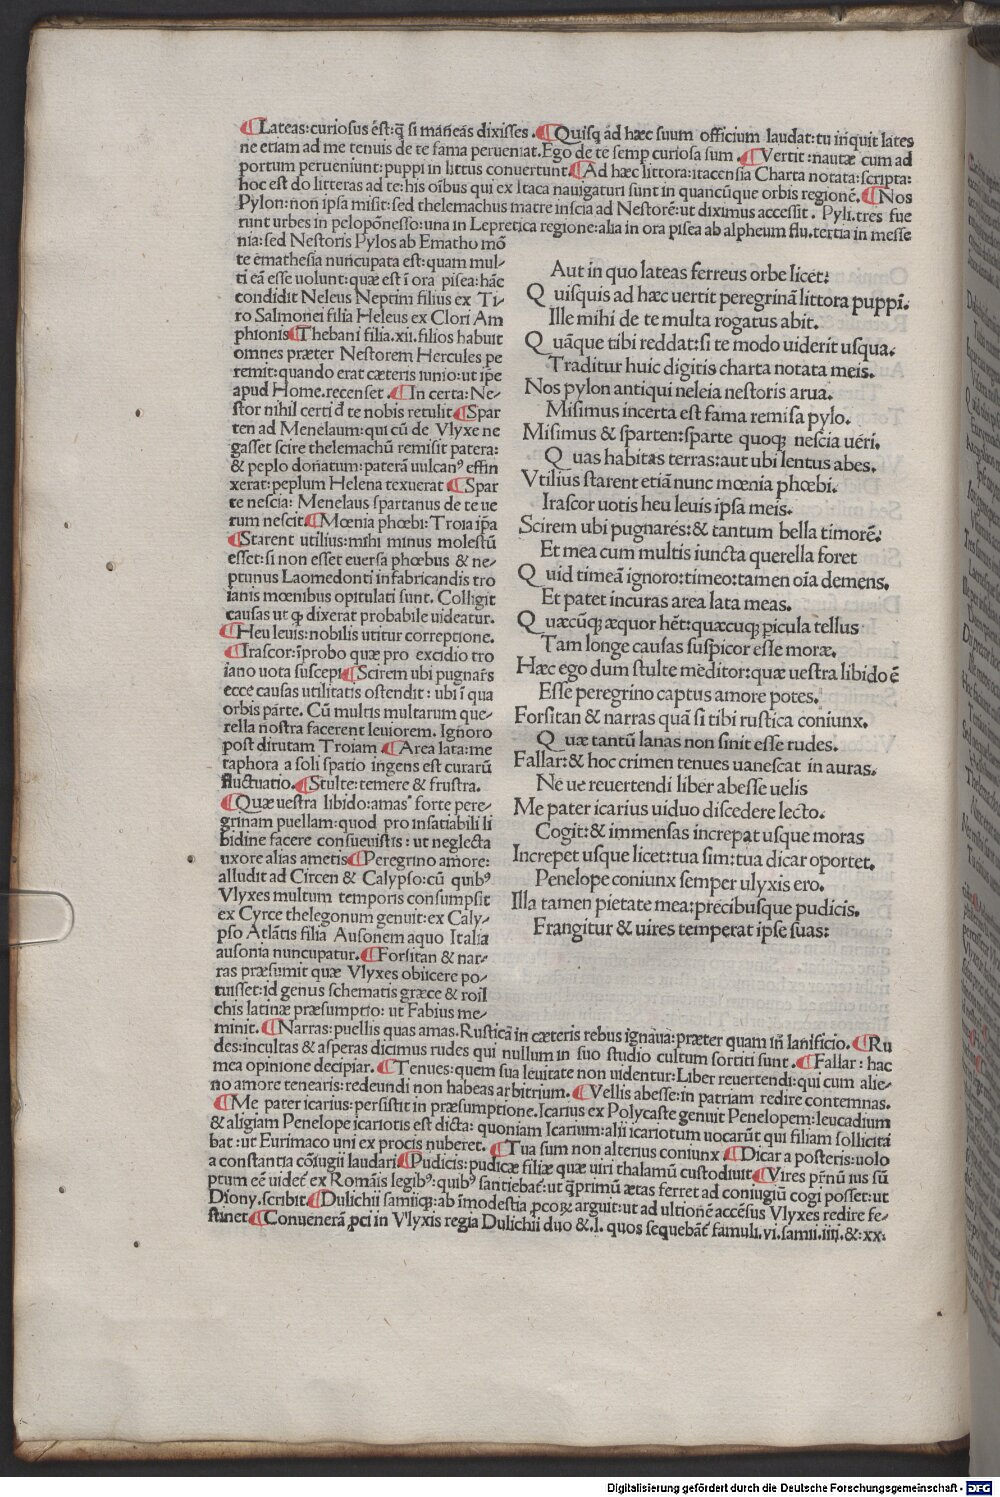 ¶Lateas:curiosus est:q̃ si maneas dixisses. ¶Quisq̃ ad hæc suum officium laudat:tu inquit lates
ne etiam ad me tenuis de te fama perueniat. Ego de te semp curiosa sum. ¶Vertit:nautæ cum ad
portum perueniunt:puppi in littus conuertunt ¶Ad hæc littora:itacensia Charta notata:scripta:
hoc est do litteras ad te:his oĩbus qui ex Itaca nauigaturi sunt in quancũque orbis regionẽ. ¶Nos
Pylon:non ipsa misit:sed thelemachus matre inscia ad Nestorẽ:ut diximus accessit. Pyli.tres fue
runt urbes in pelopõnesso:una in Lepretica regione:alia in ora pisea ab alpheum flu.tertia in messe
nia:sed Nestoris Pylos ab Ematho mõ
te emathesia nuncupata est:quam mul-
ti eã esse uolunt:quæ est ĩ ora pisea:hãc
condidit Neleus Neptini filius ex Ti-
ro Salmonei filia Heleus ex Clori Am
phionis ¶Thebani filia.xii.filios habuit
omnes præter Nestorem Hercules pe
remit:quando erat cæteris iunio:ut ip̃e
apud Home.recenset. ¶In certa:Ne-
stor nihil certi d̃ te nobis retulit ¶Spar
ten ad Menelaum:qui cũ de Vlyxe ne
gasset scire thelemachũ remisit patera:
& peplo donatum:paterã uulcan⁹ effin
xerat:peplum Helena texuerat ¶Spar
te nescia: Menelaus spartanus de te ue
rum nescit ¶Mœnia phœbi: Troia ip̃a
¶Starent utilius:mihi minus molestũ
esset:si non esset euersa phœbus & ne-
ptunus Laomedonti in fabricandis tro
ianis mœnibus opitulati sunt. Colligit
causas ut q̃ dixerat probabile uideatur.
¶Heu leuis:nobilis utitur correptione.
¶Irascor:ĩprobo quæ pro excidio tro
iano uota suscepi ¶Scirem ubi pugnar̃s
ecce causas utilitatis ostendit: ubi ĩ qua
orbis parte. Cũ multis multarum que-
rella nostra facerent leuiorem. Ignoro
post dirutam Troiam ¶Area lata:me
taphora a soli spatio ingens est curarũ
fluctuatio. ¶Stulte:temere & frustra.
¶Quæ uestra libido:amas forte pere-
grinam puellam:quod pro insatiabili li
bidine facere consueuistis: ut neglecta
uxore alias ametis ¶Peregrino amore:
alludit ad Circen & Calypso:cũ quib⁹
Vlyxes multum temporis consumpsit
ex Cyrce thelegonum genuit:ex Caly-
pso Atlãtis filia Ausonem a quo Italia
ausonia nuncupatur. ¶Forsitan & nar-
ras præsumit quæ Vlyxes obiicere po-
tuisset:id genus schematis græce & roil
chis latinæ præsumptio: ut Fabius me-
minit. ¶Narras:puellis quas amas. Rusticã in cæteris rebus ignaua:præter quam in lanificio. ¶Ru
des:incultas & asperas dicimus rudes qui nullum in suo studio cultum sortiti sunt. ¶Fallar: hac
mea opinione decipiar. ¶Tenues:quem sua leuitate non uidentur:Liber reuertendi:qui cum alie-
no amore tenearis:redeundi non habeas arbitrium. ¶Vellis abesse:in patriam redire contemnas.
¶Me pater icarius:persistit in præsumptione.Icarius ex Polycaste genuit Penelopem:leucadium
& aligiam Penelope icariotis est dicta: quoniam Icarium:alii icariotum uocarũt qui filiam sollicita
bat:ut Eurimaco uni ex procis nuberet. ¶Tua sum non alterius coniunx ¶Dicar a posteris:uolo
a constantia cõiugii laudari ¶Pudicis:pudicæ filiæ quæ uiri thalamũ custodiuit ¶Vires pr̃nũ ius sũ
ptum eẽ uidet̃ ex Romãis legib⁹:quib⁹ santiebat̃:ut q̃primũ ætas ferret ad coniugiũ cogi posset:ut
Diony.scribit ¶Dulichii samiiq;:ab ĩmodestia ꝓcoꝝ arguit:ut ad ultionẽ accẽsus Vlyxes redire fe-
stinet ¶Conuenerã ꝓci in Vlyxis regia Dulichii duo &.l. quos sequebãt̃ famuli.vi.samii.iiii.&.xx:
Aut in quo lateas ferreus orbe licet:
Q uisquis ad hæc uertit peregrinã littora puppĩ.
Ille mihi de te multa rogatus abit.
Q uãque tibi reddat:si te modo uiderit usqua.
Traditur huic digitis charta notata meis.
Nos pylon antiqui neleia nestoris arua.
Misimus incerta est fama remisa pylo.
Misimus & sparten:sparte quoq; nescia ueri.
Q uas habitas terras:aut ubi lentus abes.
Vtilius starent etiã nunc mœnia phœbi.
Irascor uotis heu leuis ipsa meis.
Scirem ubi pugnares:& tantum bella timorẽ:
Et mea cum multis iuncta querella foret
Q uid timeã ignoro:timeo:tamen oĩa demens.
Et patet incuras area lata meas.
Q uæcũq; æquor hẽt:quæcuq; ꝑicula tellus
Tam longe causas suspicor esse moræ.
Hæc ego dum stulte meditor:quæ uestra libido ẽ
Esse peregrino captus amore potes.
Forsitan & narras quã si tibi rustica coniunx.
Q uæ tantũ lanas non sinit esse rudes.
Fallar:& hoc crimen tenues uanescat in auras.
Ne ue reuertendi liber abesse uelis
Me pater icarius uiduo discedere lecto.
Cogit:& immensas increpat usque moras
Increpet usque licet:tua sim:tua dicar oportet.
Penelope coniunx semper ulyxis ero.
Illa tamen pietate mea:precibusque pudicis.
Frangitur & uires temperat ipse suas:
Digitalisierung gefördert durch die Deutsche Forschungsgemeinschaft - DFG